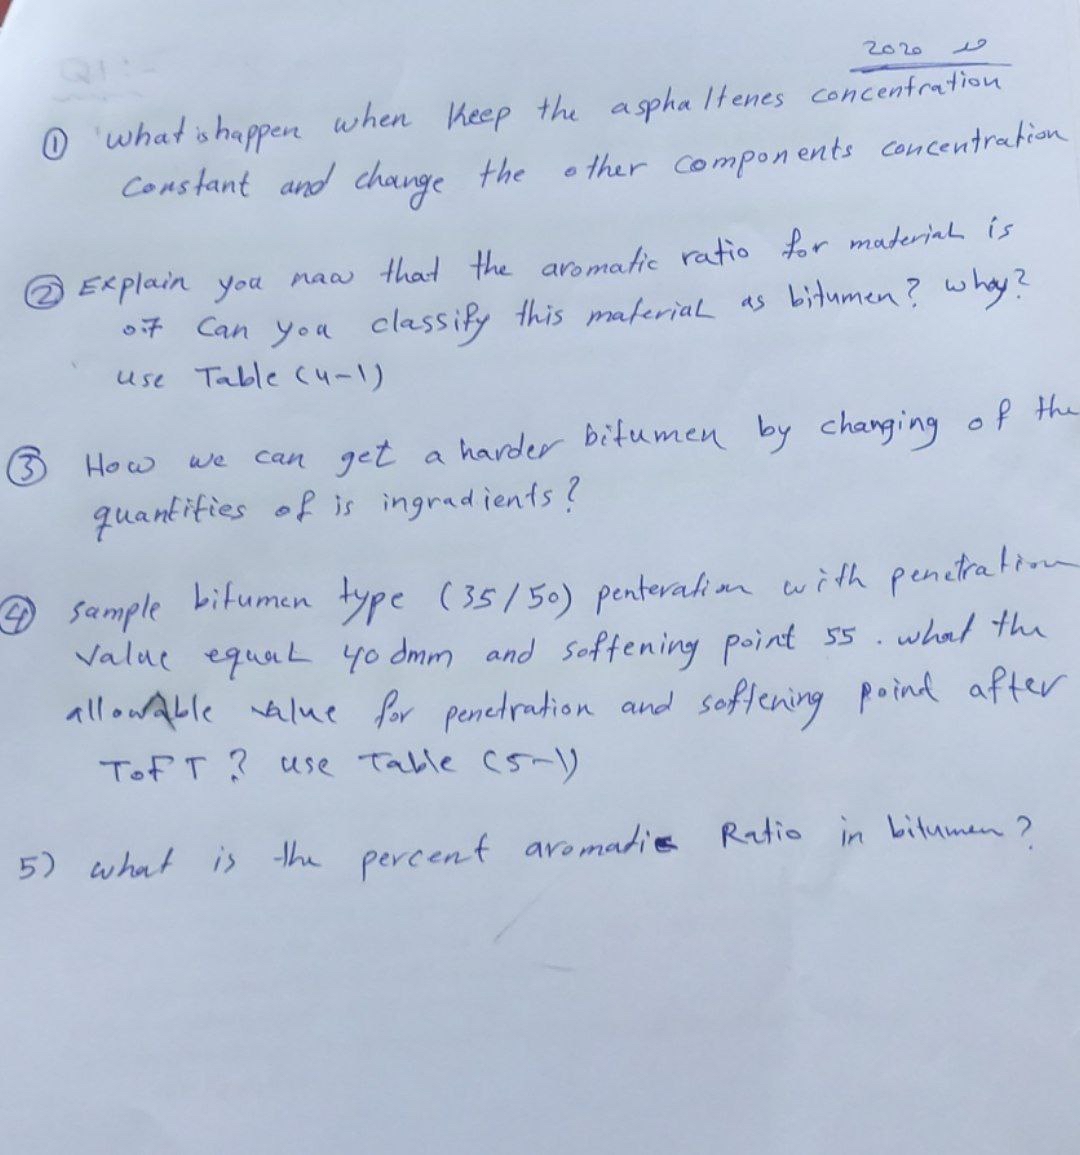 2020
① what is happen when keep the asphaltenes concentration
constant and change the other components concentration
② Explain you naw that the aromatic ratio for material is
0.7 can you classify this material as bitumen? whay?
use Table (4-1)
③ How we can get a harder bitumen by changing of the
quantities of is ingradients?
④ sample bitumen type (35/50) penteration with penetration
value equal 40 dmm and softening point 55. what the
allowable value for penetration and softening point after
TOFT? use Table (5-1)
5) what is the percent aromatic Ratio in bitumen?